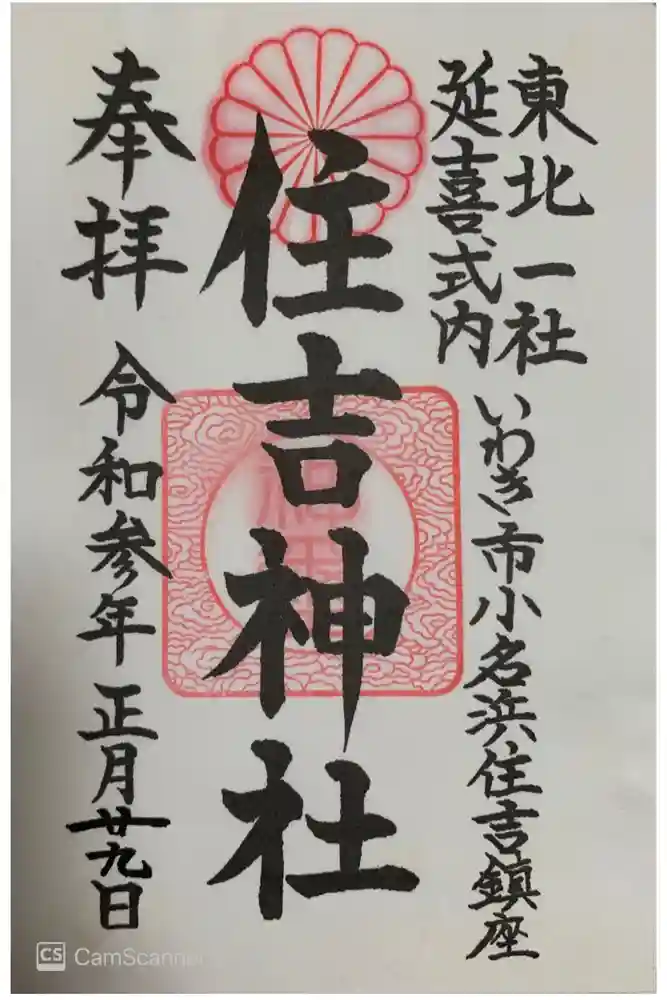 東北一社
延喜式内
いわき市小名浜住吉鎮座
住吉神社
奉拝
令和参年正月廿九日
CS CamScanner